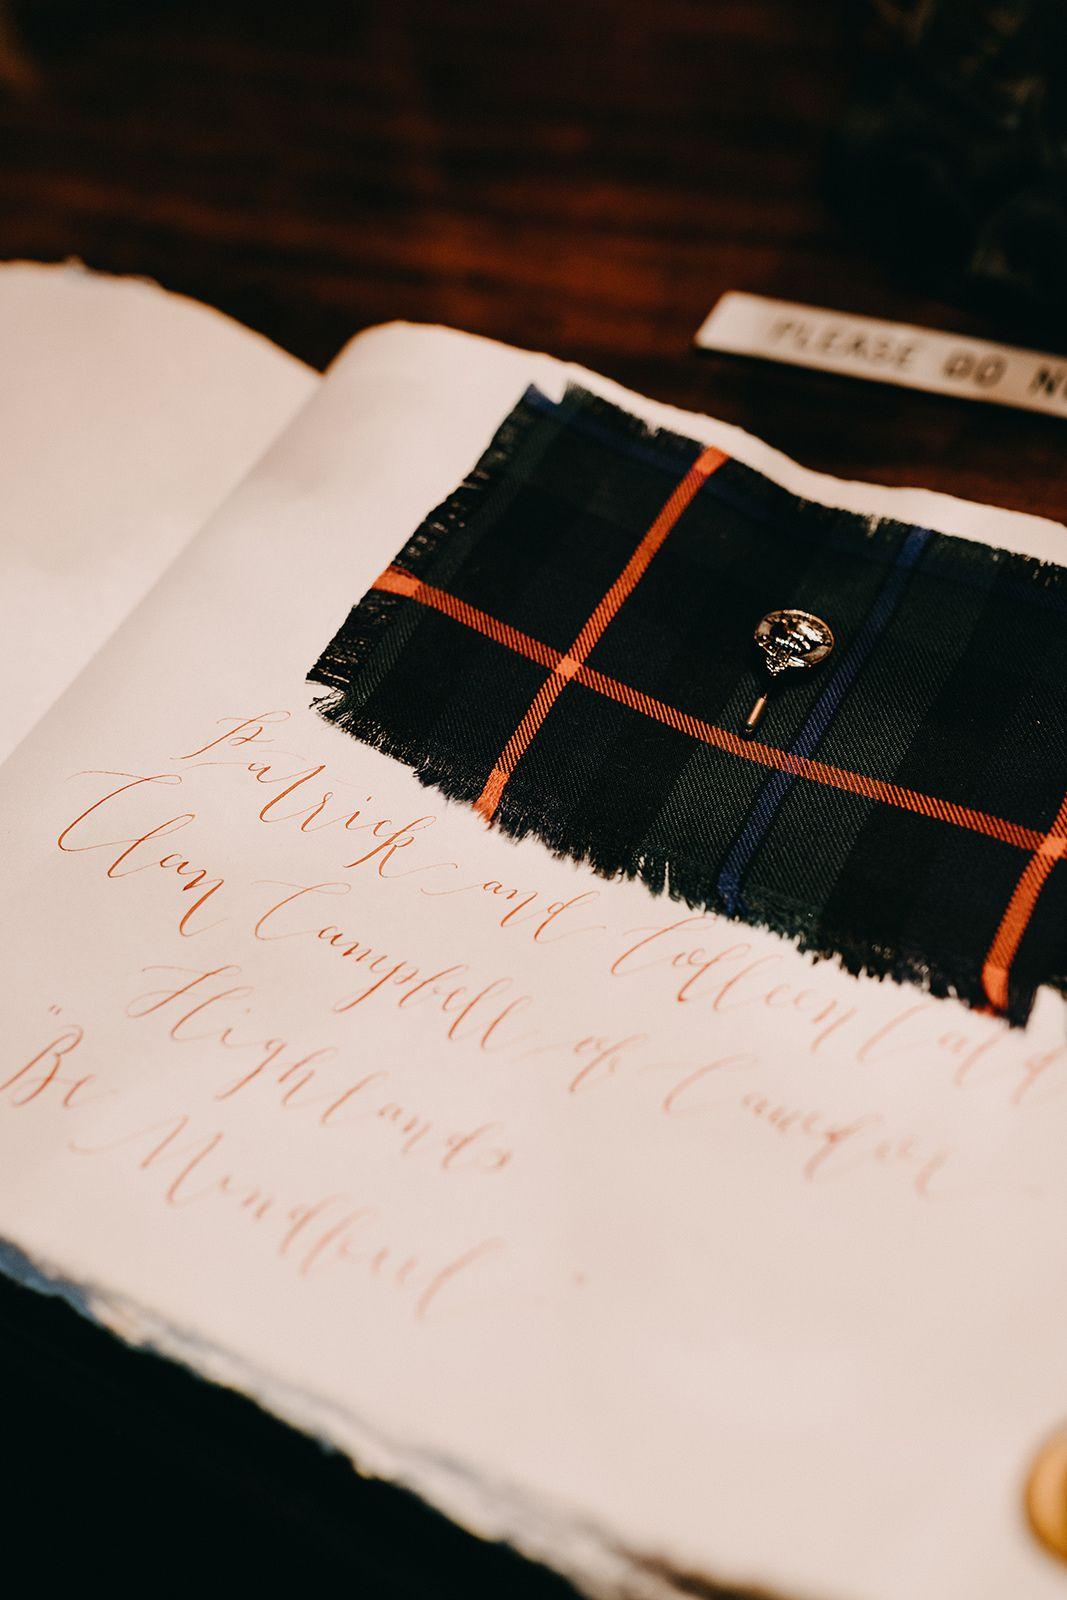 PLEASE DO
Patrick and Colleen
Clan Campbell of Cawdor
Highlands
"Be Mindful